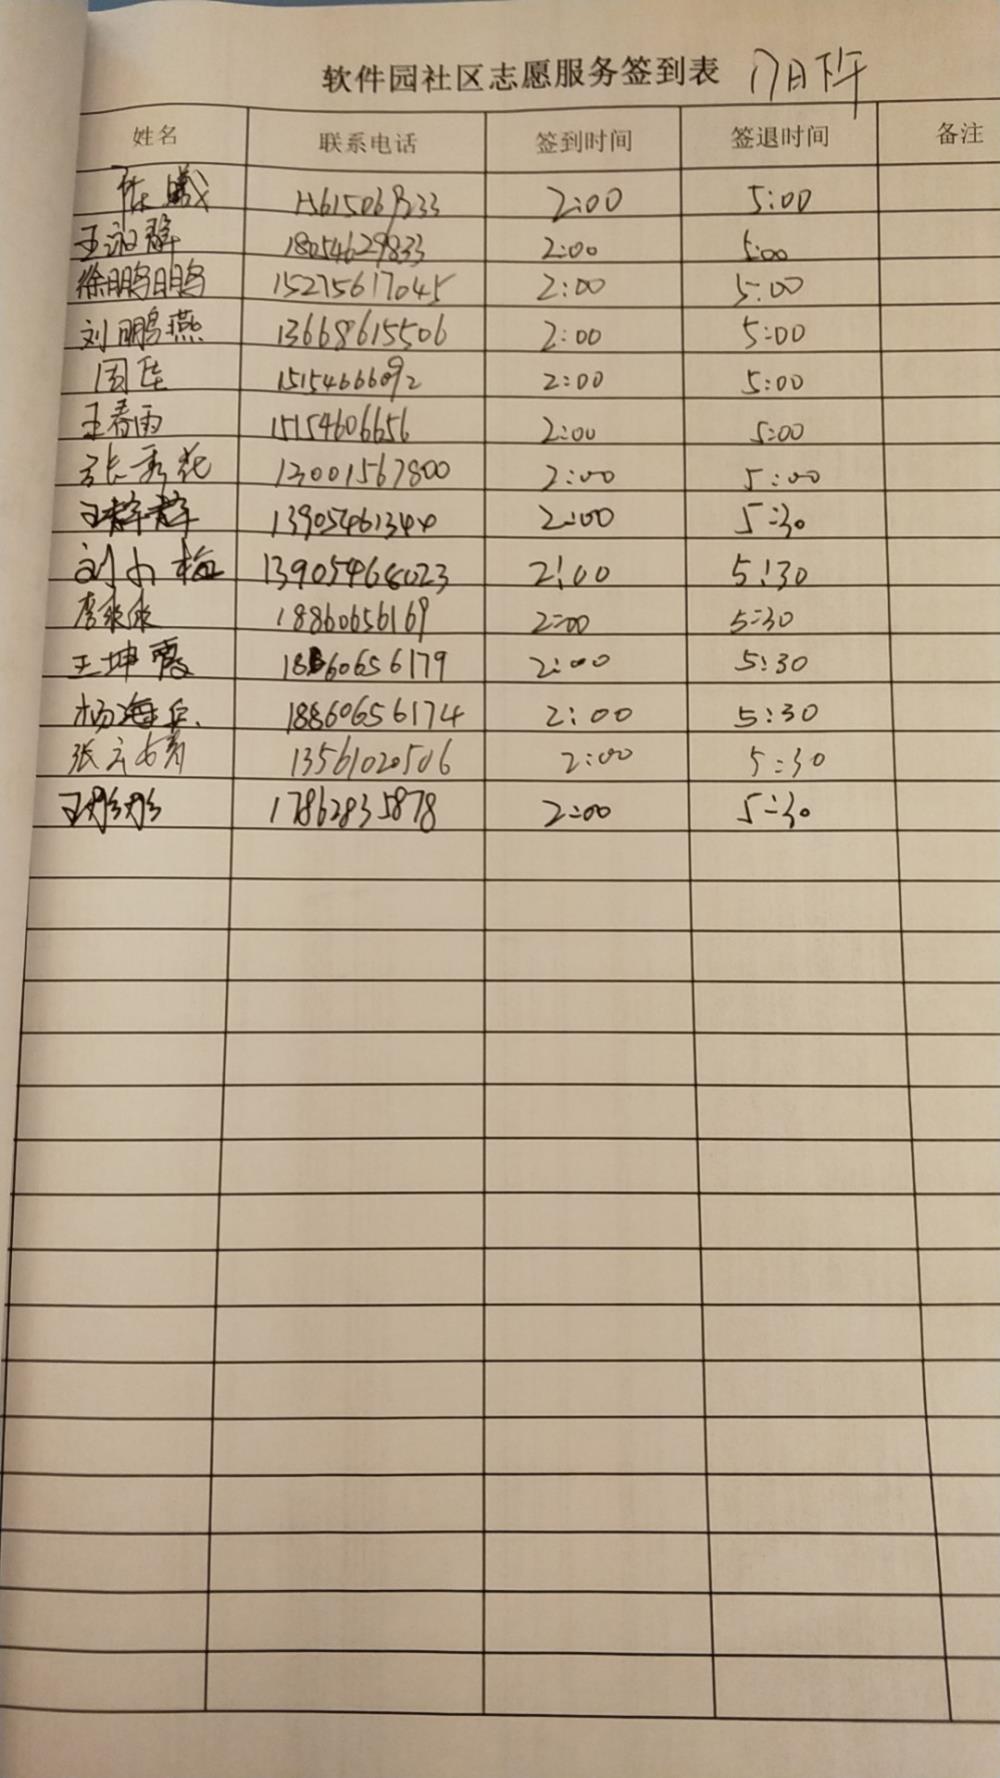 软件园社区志愿服务签到表 17日下午
姓名 联系电话 签到时间 签退时间 备注
2:00 5:00
18054629833 2:00 5:00
徐鹏鹏 15275617045 2:00 5:00
刘鹏燕 13668615506 2:00 5:00
周佳 15154666092 2:00 5:00
王春雨 15154606656 2:00 5:00
张秀花 13001567800 2:00 5:00
13905461344 2:00 5:30
刘小梅 13905468023 2:00 5:30
李永永 18860656169 2:00 5:30
王坤霞 18860656179 2:00 5:30
杨海兵 18860656174 2:00 5:30
张云 13561020506 2:00 5:30
王彤彤 17862835878 2:00 5:30